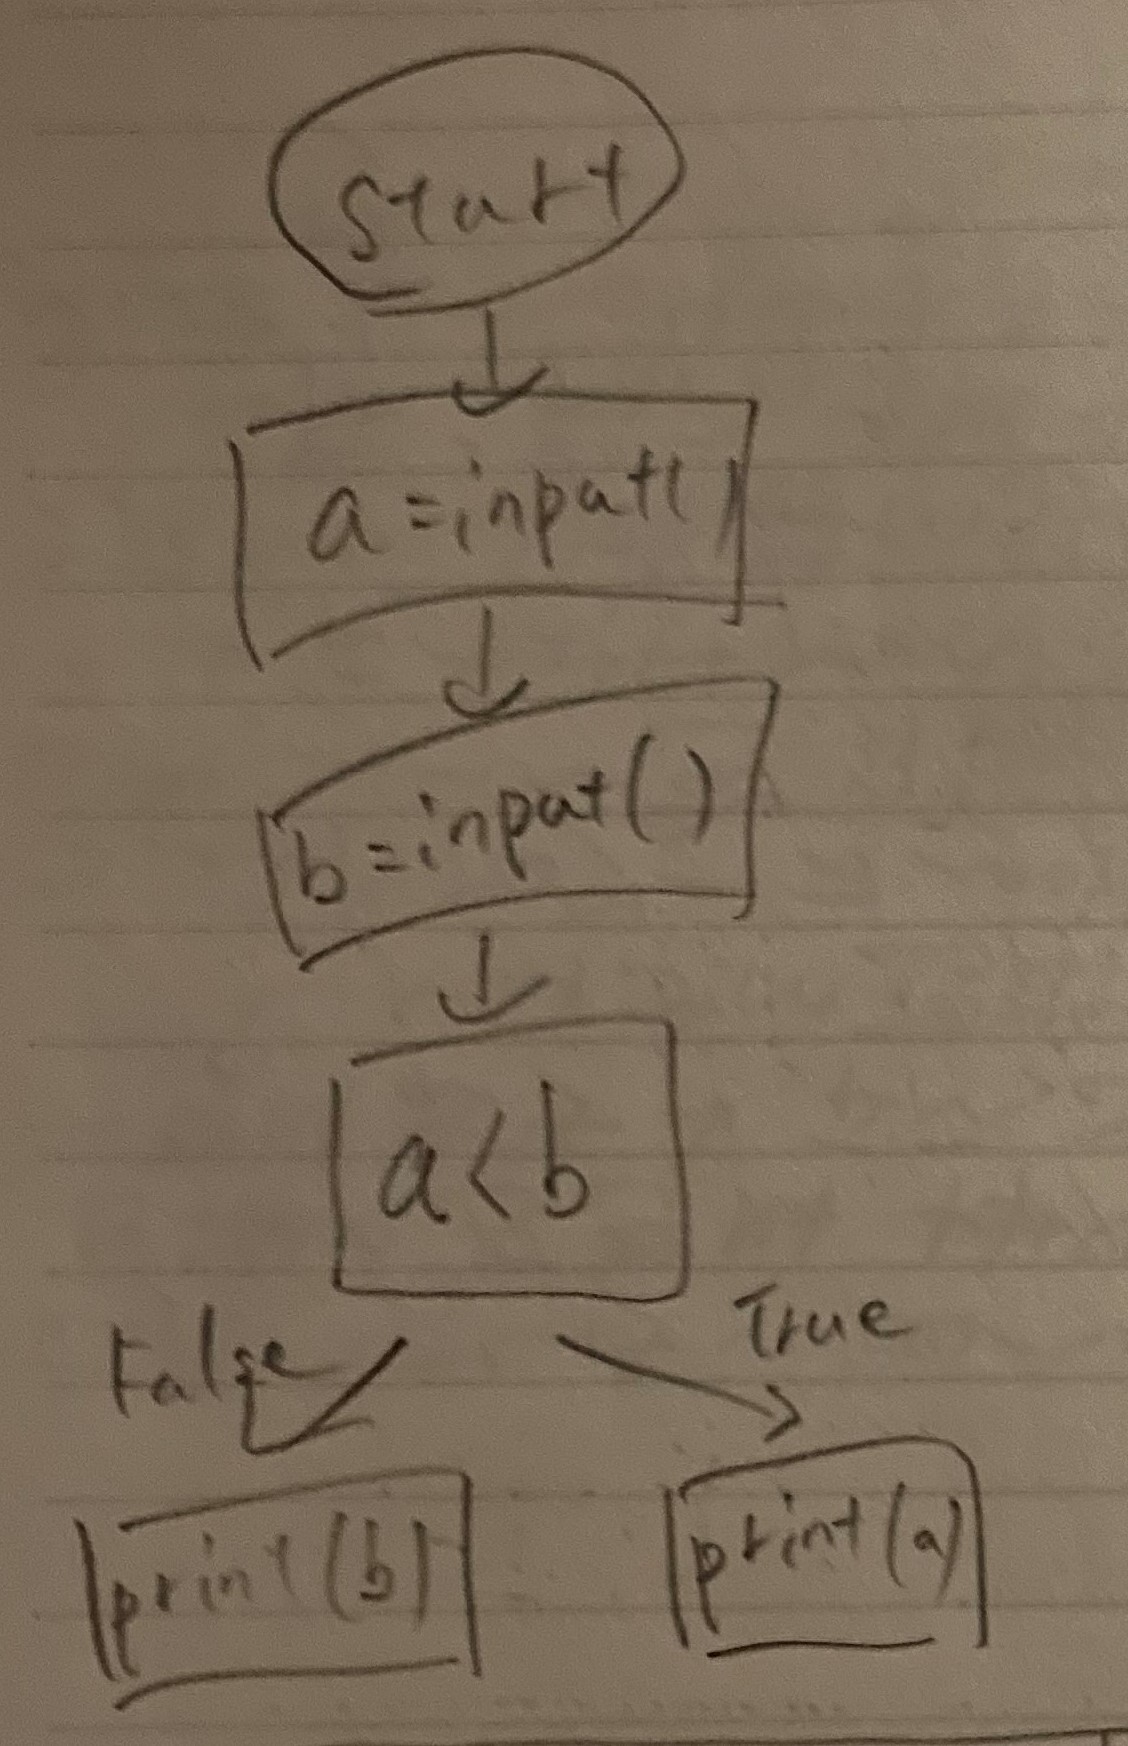 Start
a=input()
b=input()
a<b
False
True
print(b)
print(a)